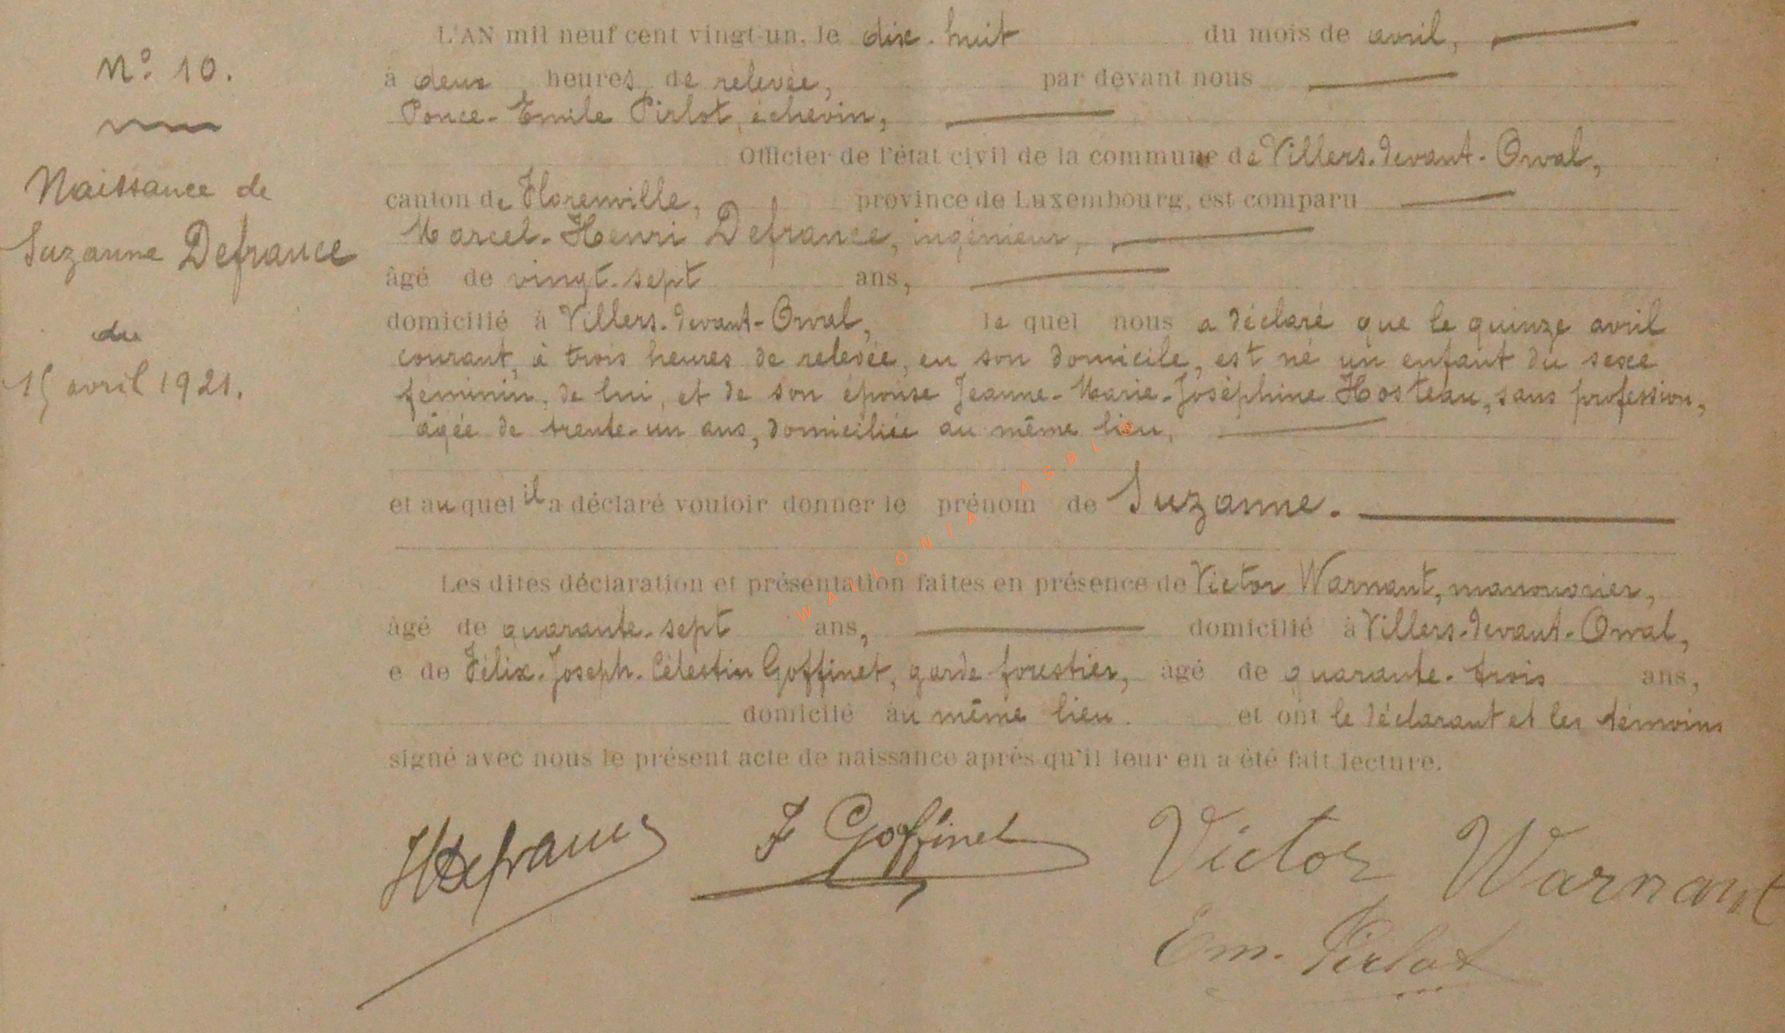 N° 10.
Naissance de
Suzanne Defrance
du
15 avril 1921.
L'AN mil neuf cent vingt-un, le dix-huit du mois de avril,
à deux heures de relevée, par devant nous
Ponce-Emile Pirlot, échevin,
Officier de l'état civil de la commune de Villers-devant-Orval,
canton de Florenville, province de Luxembourg, est comparu
Marcel-Henri Defrance, ingénieur,
âgé de vingt-sept ans,
domicilié à Villers-devant-Orval, le quel nous a déclaré que le quinze avril
courant, à trois heures de relevée, en son domicile, est né un enfant du sexe
féminin, de lui, et de son épouse Jeanne-Marie-Joséphine Hosteau, sans profession,
âgée de trente-un ans, domiciliée au même lieu,
et au quel il a déclaré vouloir donner le prénom de Suzanne.
Les dites déclaration et présentation faites en présence de Victor Warnant, manouvrier,
âgé de quarante-sept ans, domicilié à Villers-devant-Orval,
e de Félix-Joseph-Célestin Goffinet, garde forestier, âgé de quarante-trois ans,
domicilié au même lieu. et ont le déclarant et les témoins
signé avec nous le présent acte de naissance après qu'il leur en a été fait lecture.
HDefrance F Goffinet Victor Warnant
Em. Pirlot